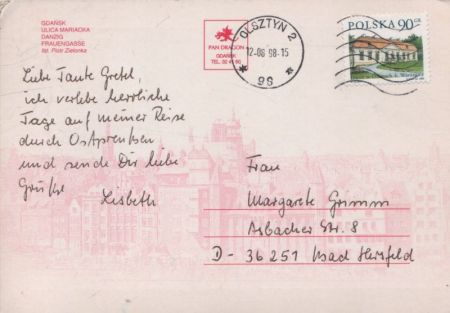 GDAŃSK
ULICA MARIACKA
DANZIG
FRAUENGASSE
fot. Piotr Zielonka
PAN DRAGON
GDAŃSK
OLSZTYN 2
12-08 98-15
96
POLSKA 90 GR
Liebe Tante Gretel,
ich verlebe herrliche
Tage auf meiner Reise
durch Ostpreußen
und sende Dir liebe
Grüße
Lisbeth
Frau
Margarete Grimm
Asbacher Str. 8
D - 36251 Bad Hersfeld